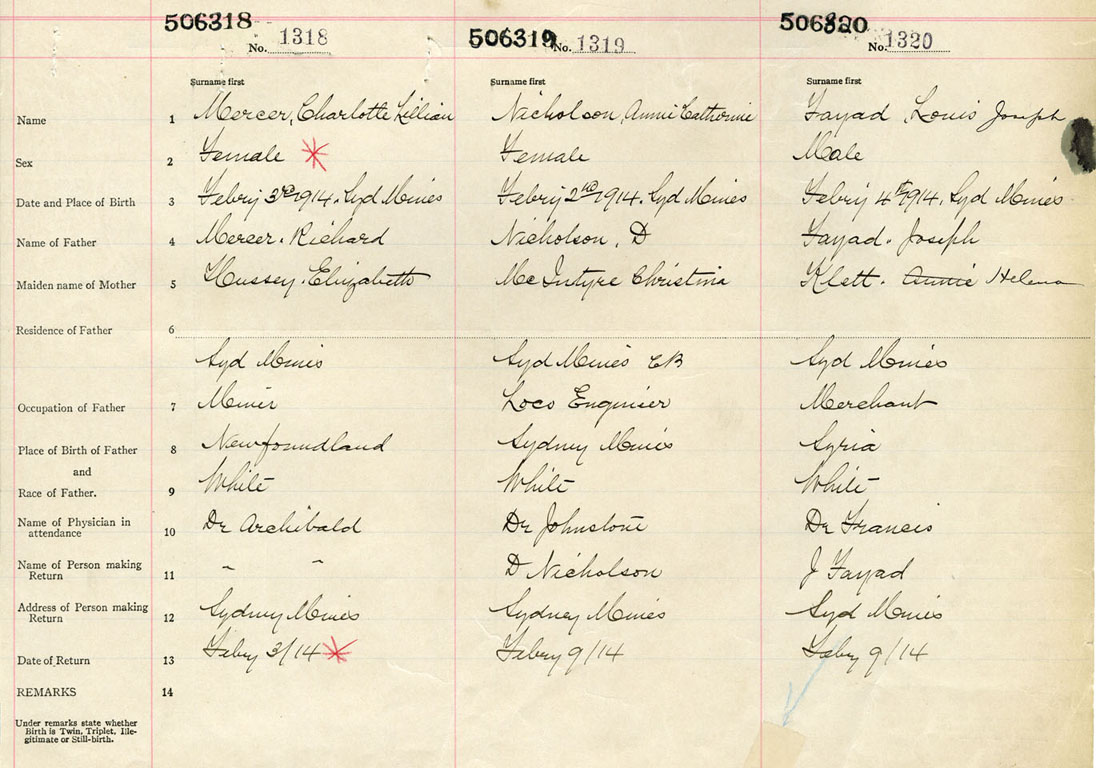 506318 506319 506320
No. 1318 No. 1319 No. 1320
Surname first Surname first Surname first
Name 1 Mercer, Charlotte Lillian Nicholson, Annie Catherine Fayad Louis Joseph
Sex 2 Female Female Male
Date and Place of Birth 3 Febry 3rd 1914. Syd Mines Febry 2nd 1914. Syd Mines Febry 4th 1914. Syd Mines
Name of Father 4 Mercer. Richard Nicholson, D Fayad. Joseph
Maiden name of Mother 5 Hussey. Elizabeth McIntyre Christina Klett. Annie Helena
Residence of Father 6
Syd Mines Syd Mines CB Syd Mines
Occupation of Father 7 Miner Loco Engineer Merchant
Place of Birth of Father 8 Newfoundland Sydney Mines Syria
and
Race of Father. 9 White White White
Name of Physician in
attendance 10 Dr Archibald Dr Johnstone Dr Francis
Name of Person making
Return 11 " " D Nicholson J Fayad
Address of Person making
Return 12 Sydney Mines Sydney Mines Syd Mines
Date of Return 13 Febry 3/14 Febry 9/14 Febry 9/14
REMARKS 14
Under remarks state whether
Birth is Twin, Triplet, Ille-
gitimate or Still-birth.